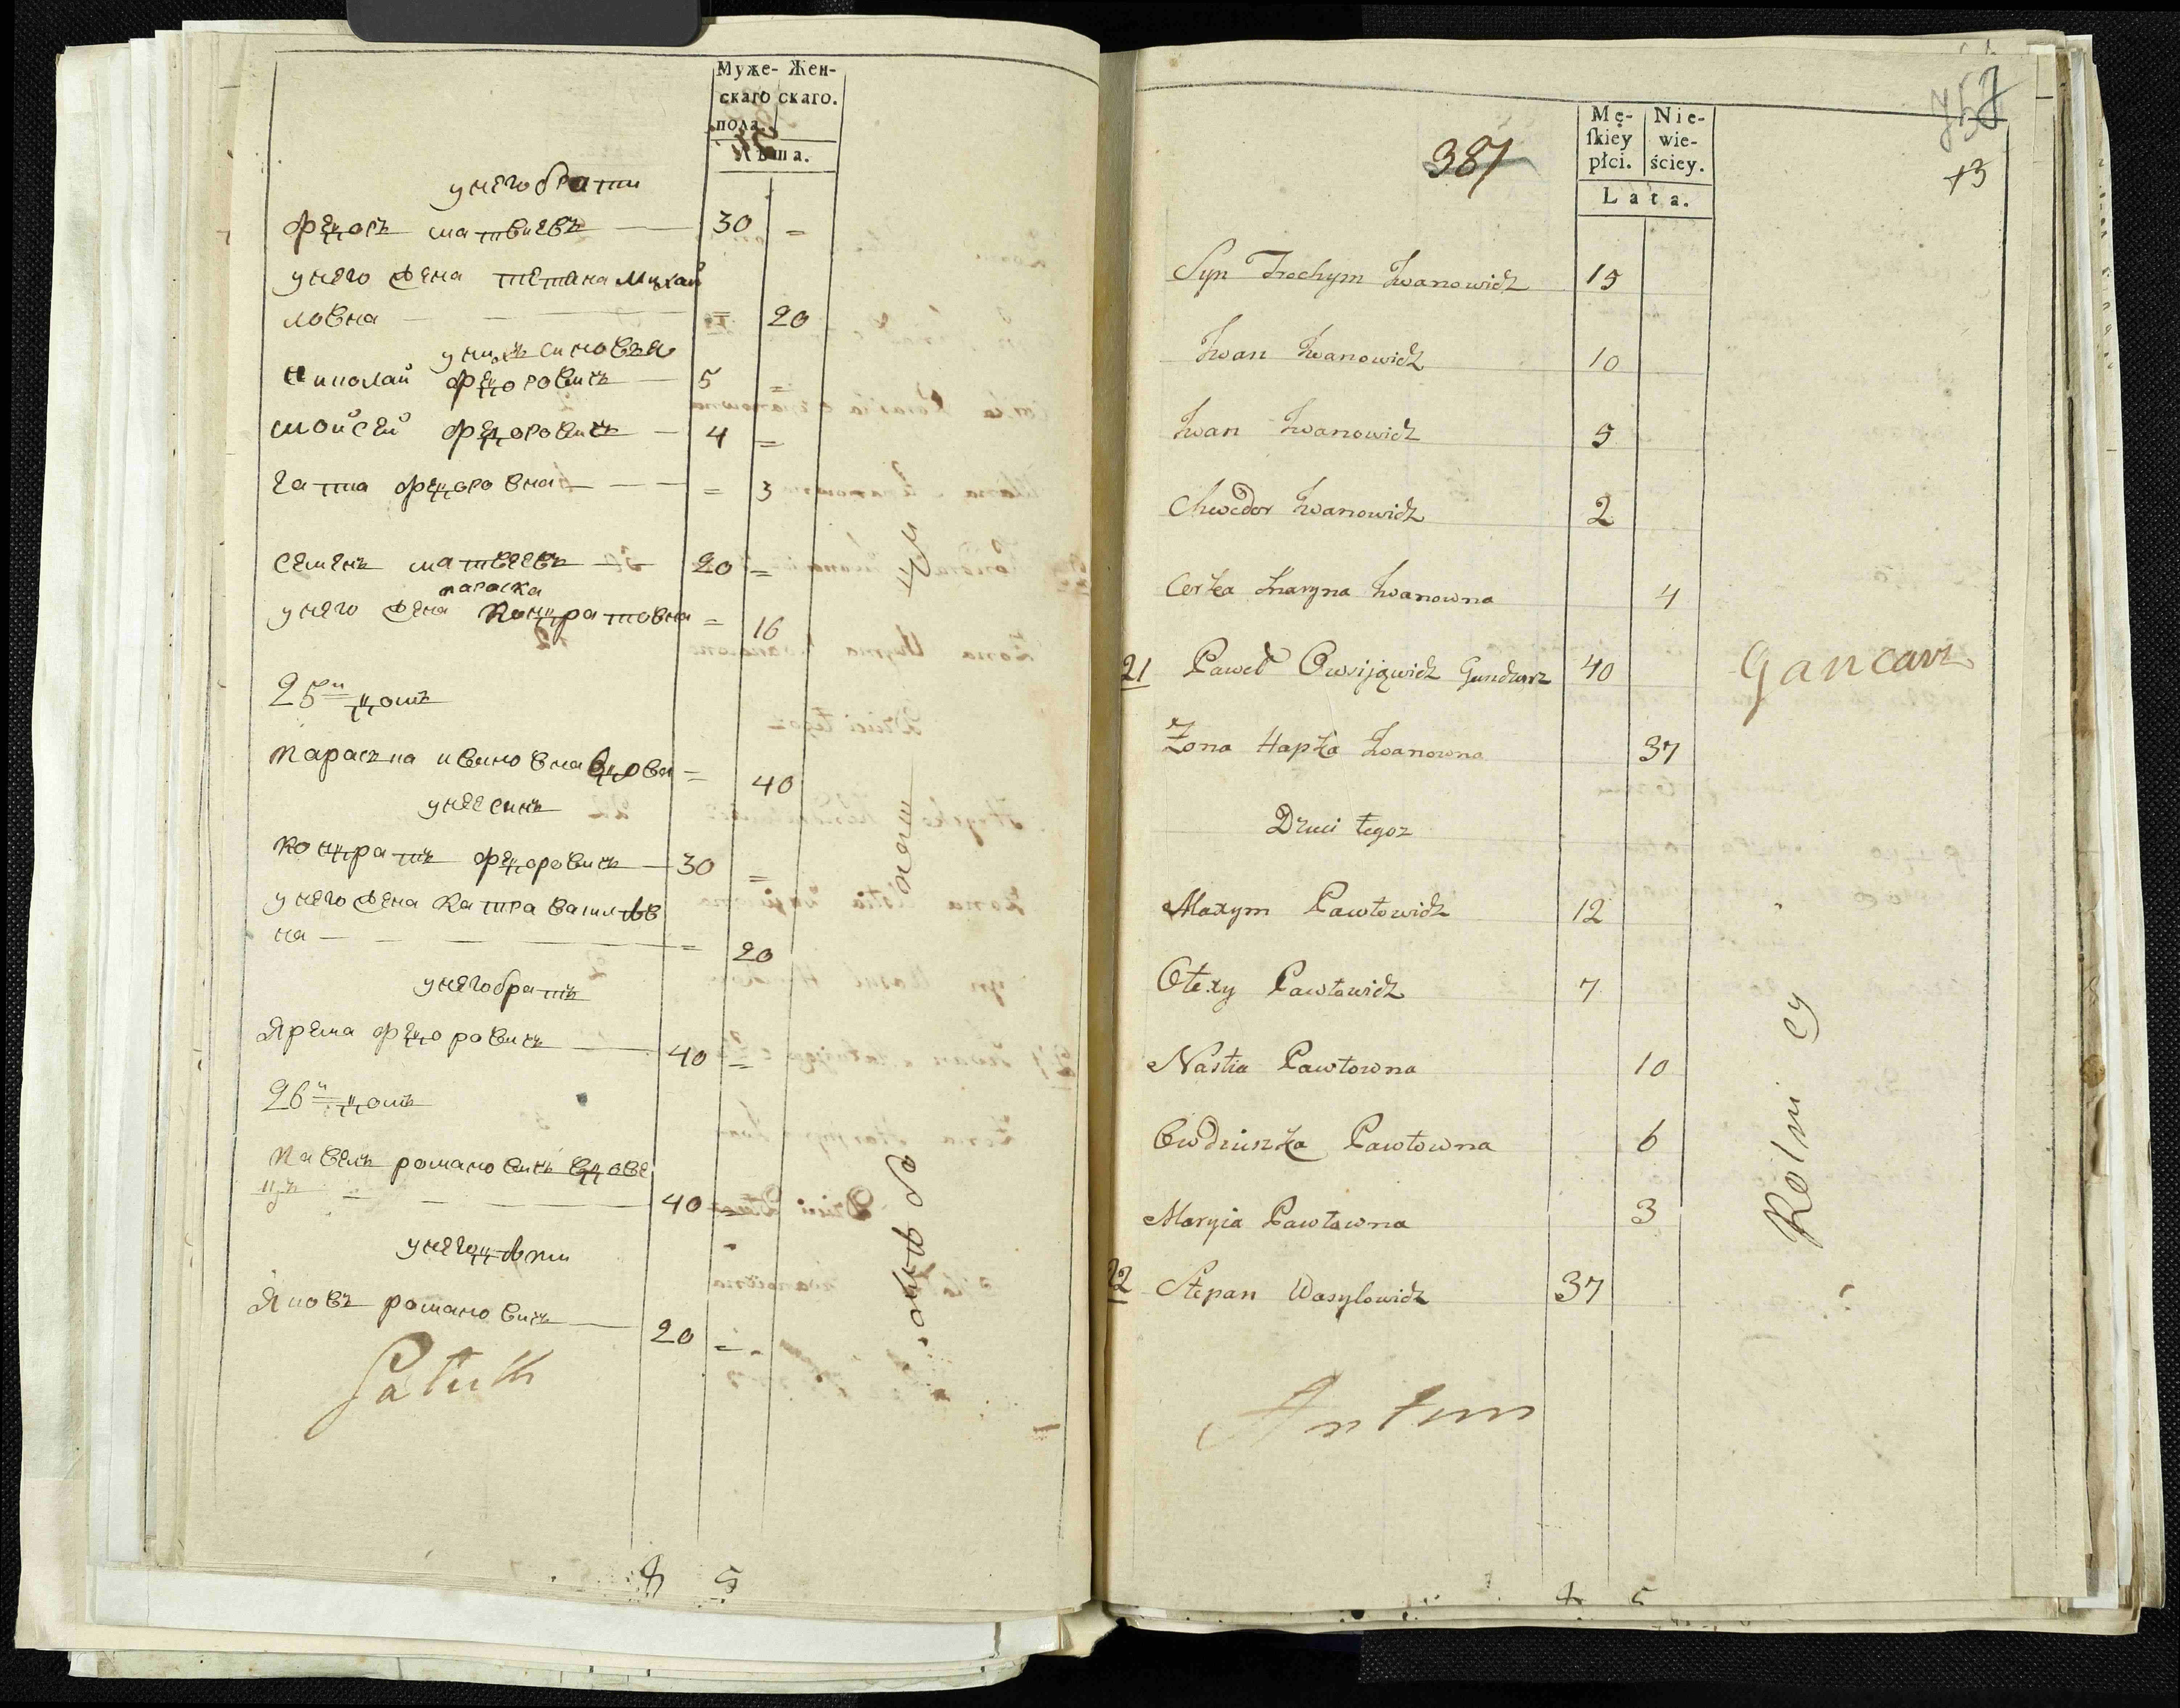 Муже- Жен-
скаго скаго.
пола.
Лѣта.
унего брати
Федоръ матвиевъ — 30 =
унего жена тетяна Михай
ловна — — — = 20
унихъ синовья
Николай федоровичъ — 5 =
мойсей федоровичъ — 4 =
гапка федоровна — — = 3
семенъ матвеевъ — 20 =
параска
унего жена Кондратовна = 16
25й домъ
Параска ивановна вдова = 40
унее синъ
Кондратъ федоровичъ — 30 =
унего жена Катра василѣв
на — — — = 20
унего братъ
Ярема федоровичъ — 40 =
26й домъ
Павелъ романовичъ вдове
цъ — — — 40 =
унего дѣти
Яковъ романовичъ — 20 =
8 5
387
757
13
Mę- Nie-
skiey wie-
płci. ściey.
Lata.
Syn Trochym Iwanowicz 15
Iwan Iwanowicz 10
Iwan Iwanowicz 5
Chwedor Iwanowicz 2
Corka Maryna Iwanowna 4
21 Paweł Owsijowicz Gandzarz 40 Gancarz
Żona Hapka Iwanowna 37
Dzieci tegoz
Maxym Pawłowicz 12
Ołexy Pawłowicz 7
Nastia Pawłowna 10
Owdziuszka Pawłowna 6
Maryia Pawłowna 3
22 Stepan Wasylowicz 37
Rolni cy
Antoni